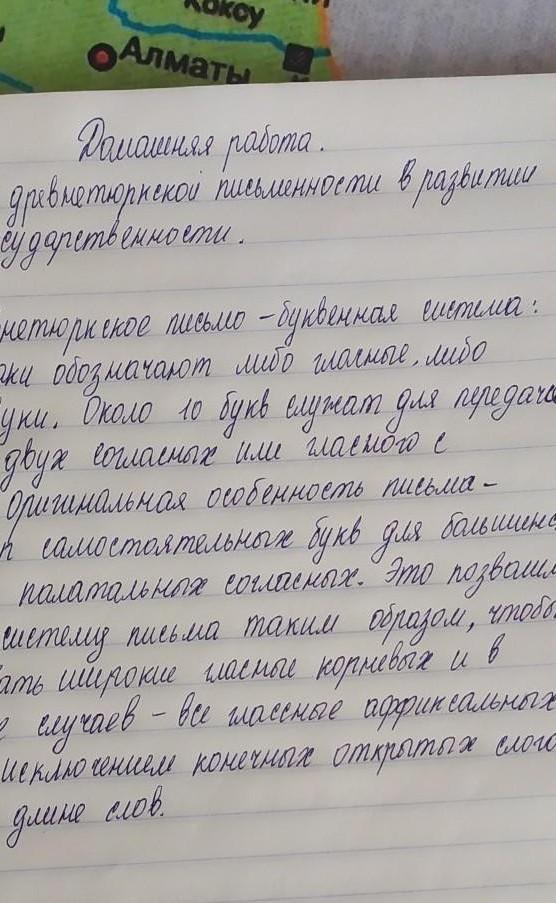 Коксу
Алматы
Домашняя работа.
древнетюркской письменности в развитии
сударственности.
нетюркское письмо - буквенная система:
аки обозначают либо гласные, либо
уки. Около 10 букв служат для передачи
двух согласных или гласного с
Оригинальная особенность письма -
п самостоятельных букв для большинс
палатальных согласных. Это позволи
систему письма таким образом, чтобы
ать широкие гласные корневых и в
е случаев - все глассные аффиксальных
исключением конечных открытых слого
длине слов.